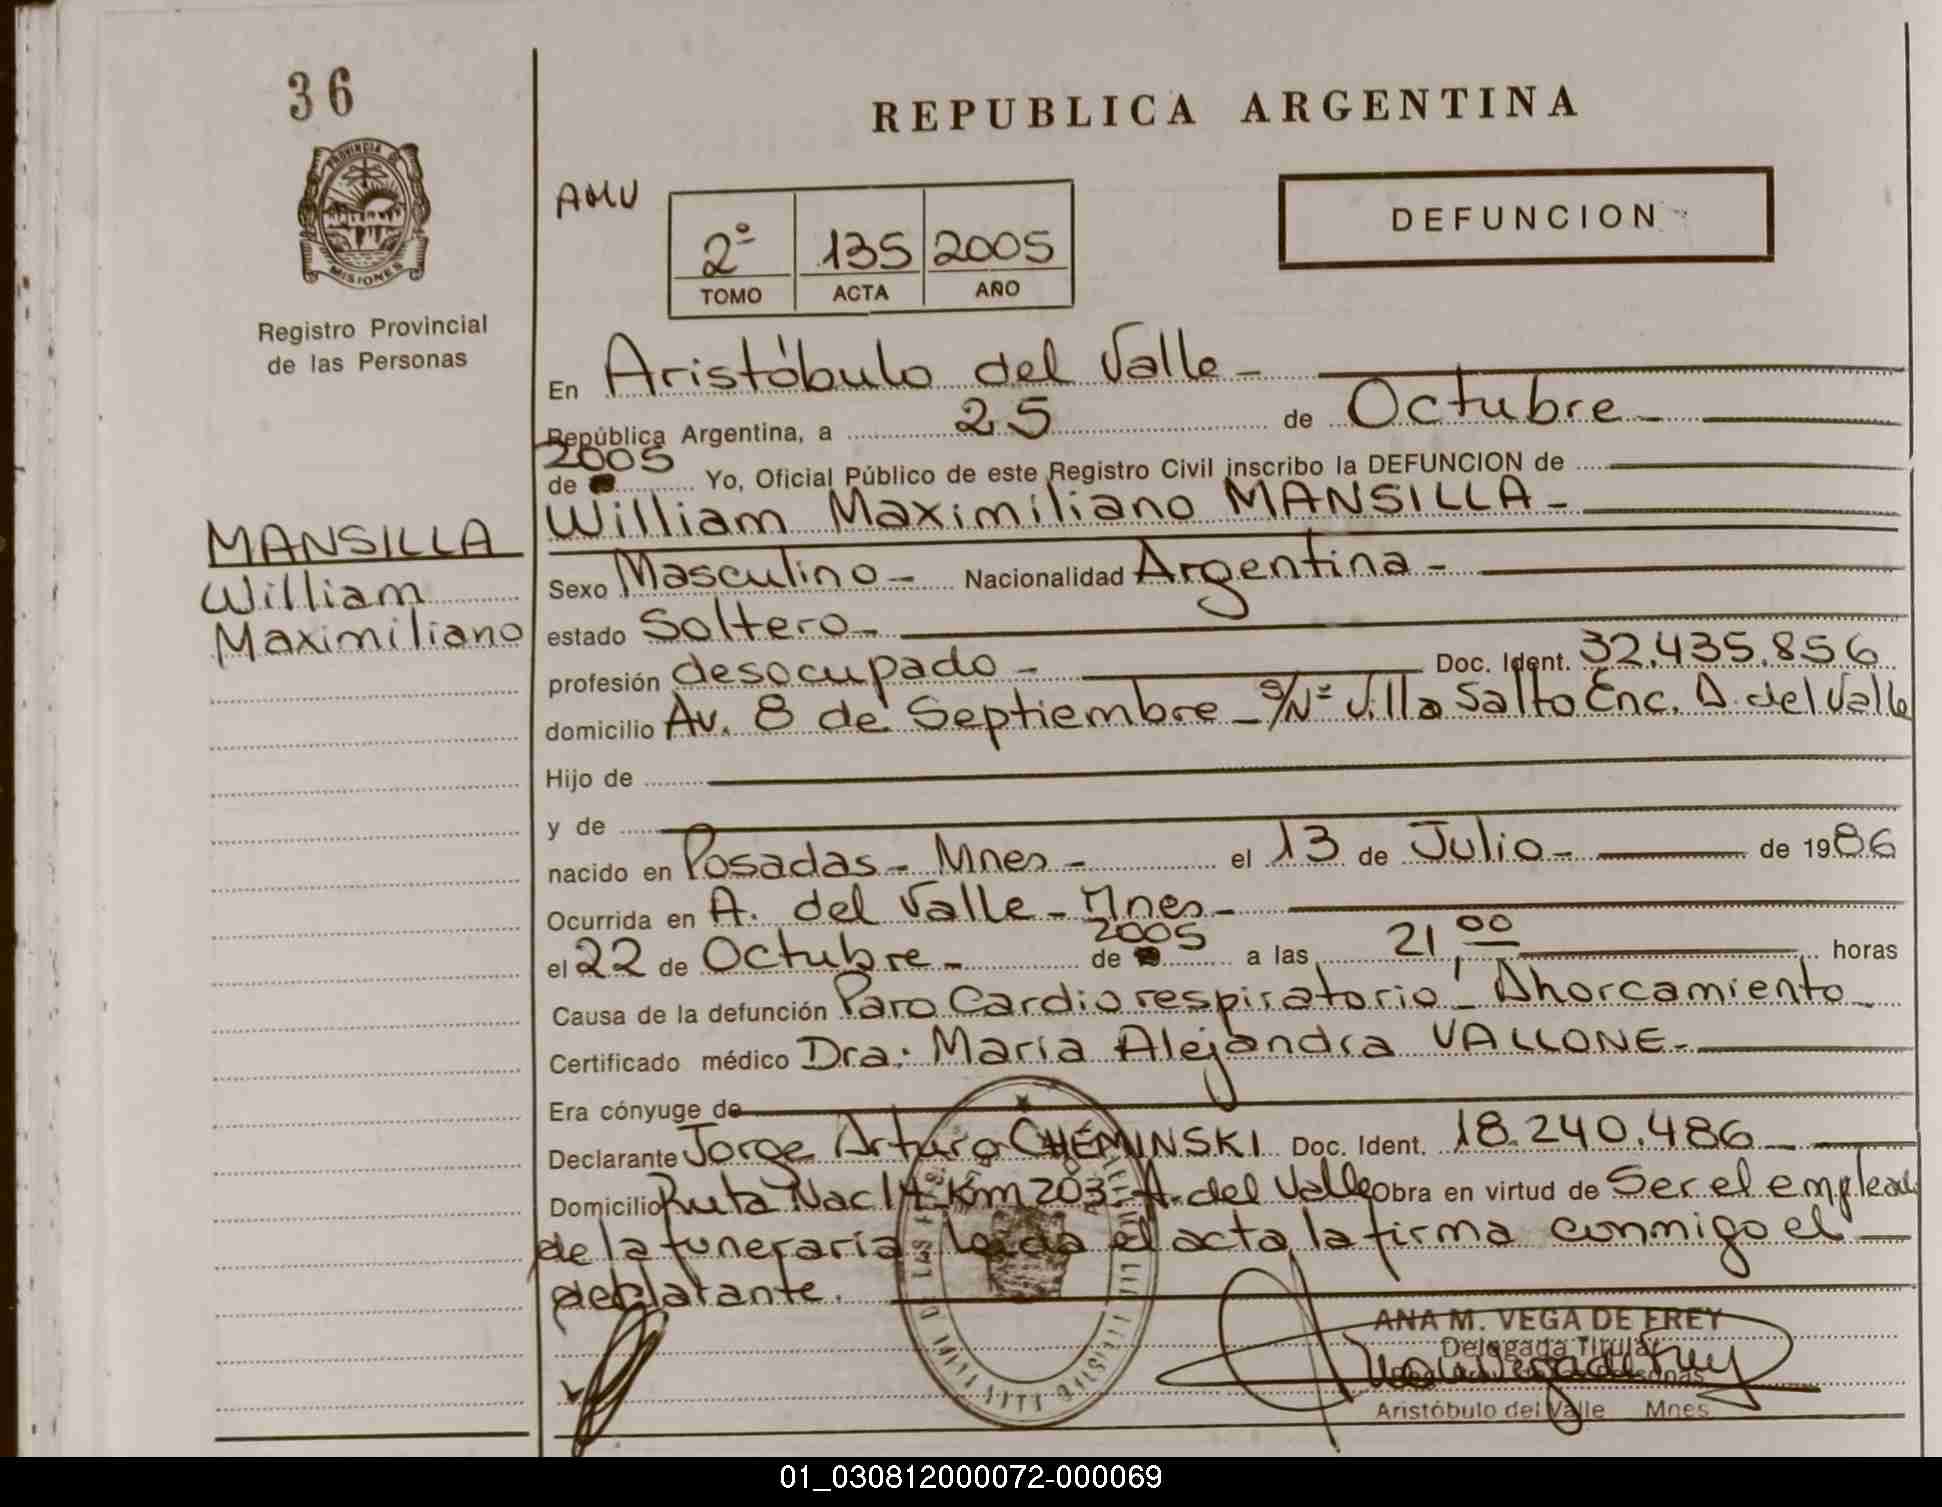 36
REPUBLICA ARGENTINA
PROVINCIA DE
MISIONES
Registro Provincial
de las Personas
AMV
DEFUNCION
2º 135 2005
TOMO ACTA AÑO
En Aristóbulo del Valle -
República Argentina, a 25 de Octubre -
2005
de Yo, Oficial Público de este Registro Civil inscribo la DEFUNCION de
William Maximiliano MANSILLA -
MANSILLA
William
Maximiliano
Sexo Masculino - Nacionalidad Argentina -
estado Soltero -
profesión desocupado - Doc. Ident. 32.435.856
domicilio Av. 8 de Septiembre - S/Nº Villa Salto Enc. A. del Valle
Hijo de
y de
nacido en Posadas - Mnes - el 13 de Julio - de 1986
Ocurrida en A. del Valle - Mnes -
el 22 de Octubre - de 2005 a las 21,00 horas
Causa de la defunción Paro Cardiorespiratorio - Ahorcamiento -
Certificado médico Dra. María Alejandra VALLONE -
Era cónyuge de
Declarante Jorge Arturo CHEMINSKI Doc. Ident. 18.240.486 -
Domicilio Ruta Nac 14 - Km 203 - A. del Valle obra en virtud de Ser el empleado
de la funeraria leida el acta, la firma conmigo el
declarante.
ANA M. VEGA DE FREY
Delegada Titular
Aristóbulo del Valle Mnes
01_030812000072-000069